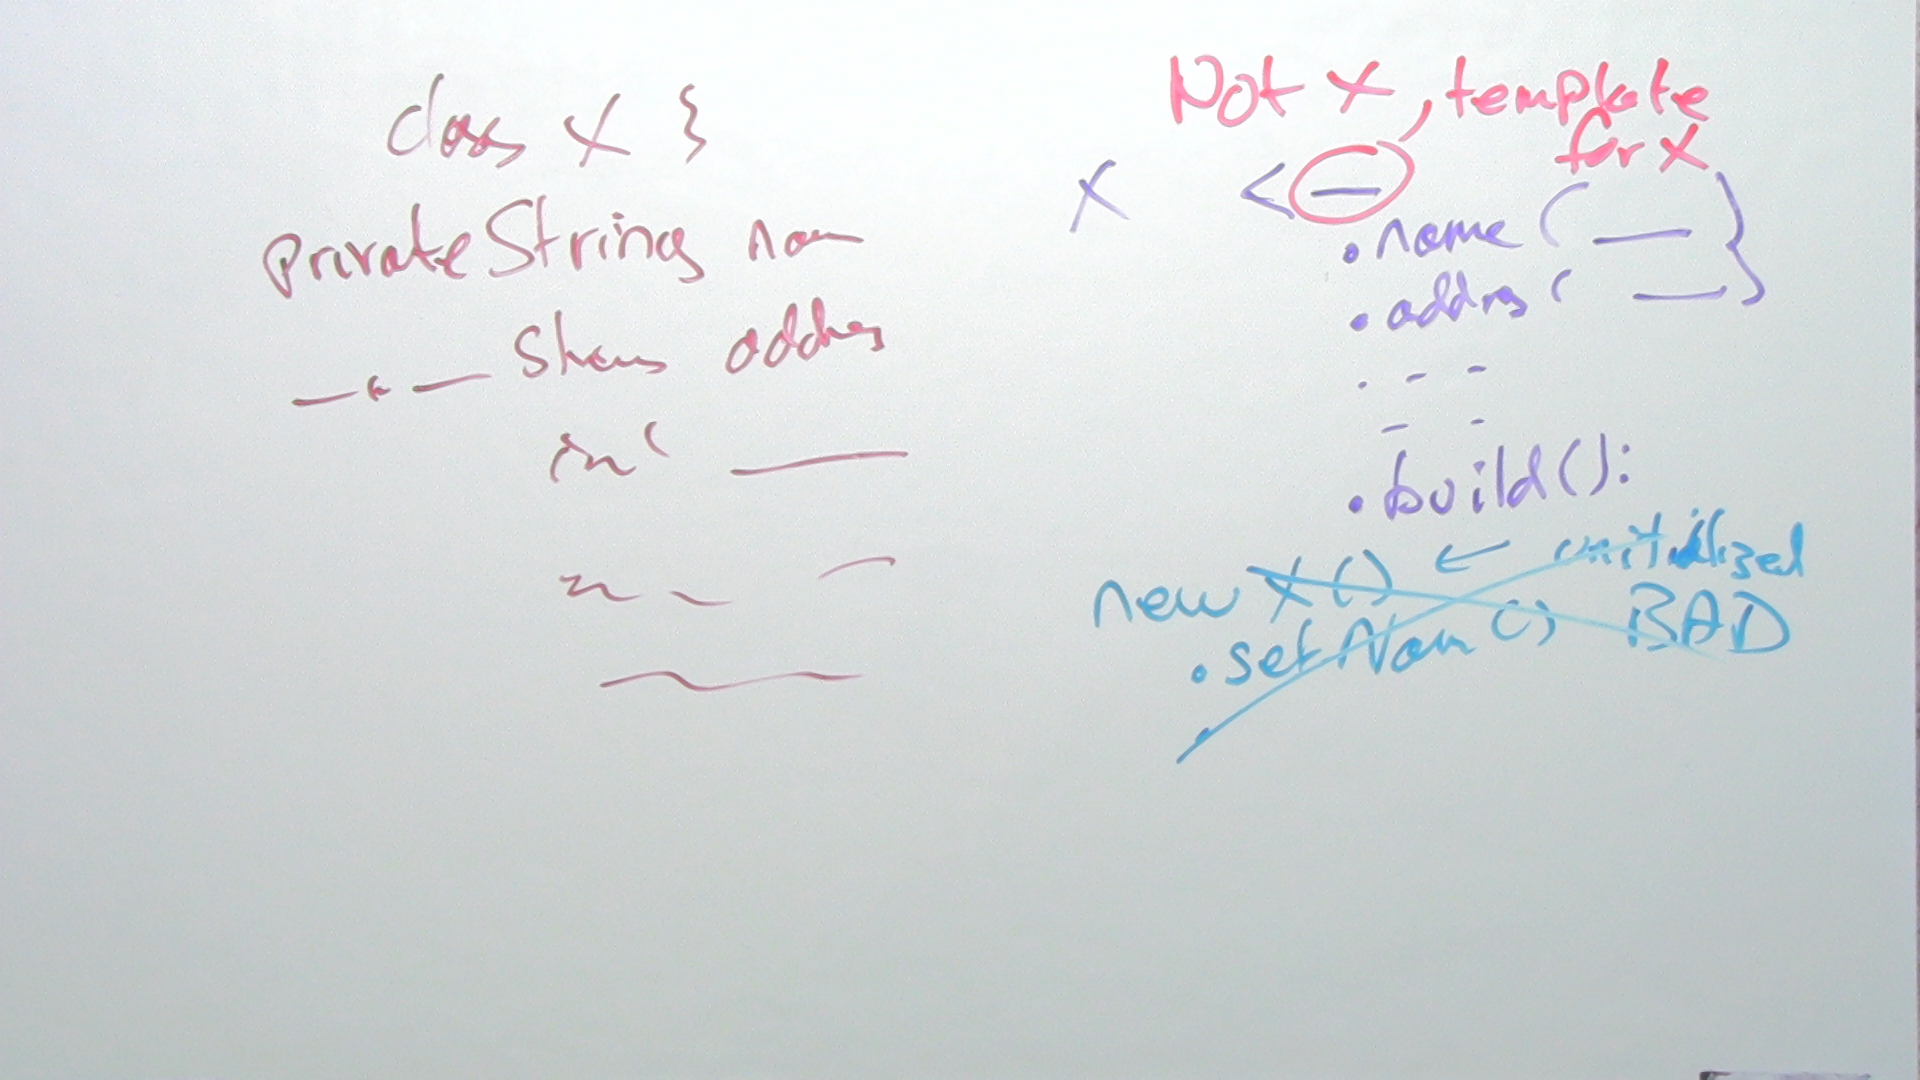 class X {
private String nam
— " — String address
int
Not X, template
for X
X <—
.name ( —
.address ( —
. - -
- -
.build():
new X() ← unitialized
.setNam() BAD
.